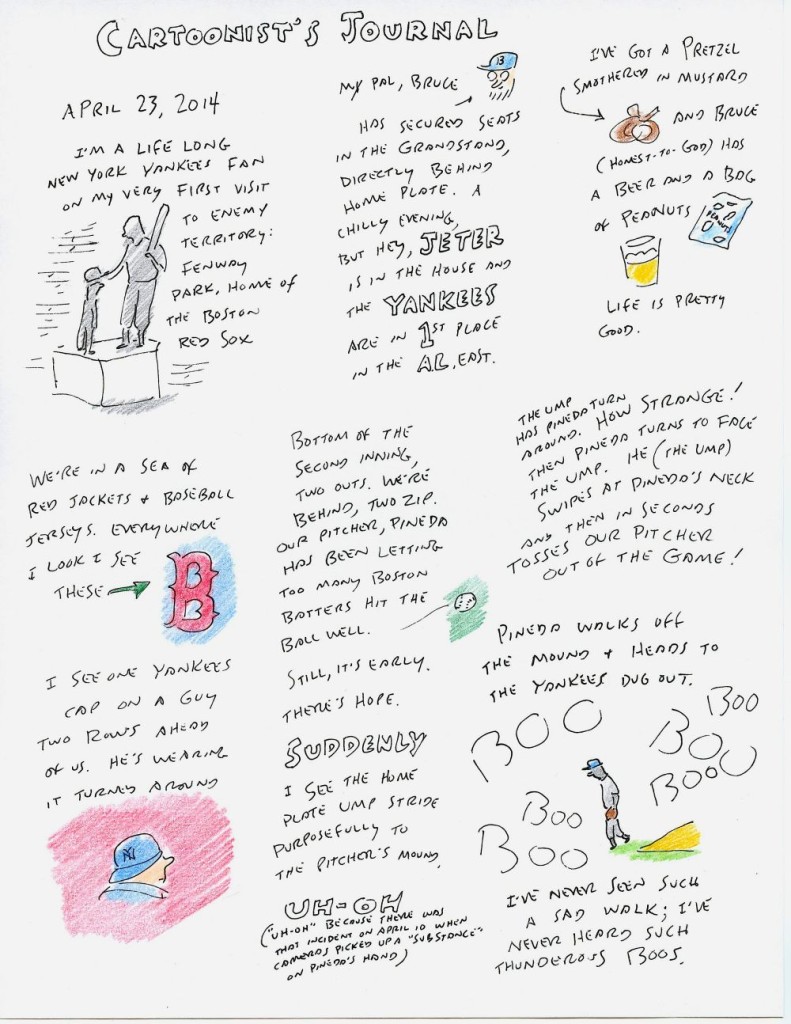 CARTOONIST'S JOURNAL
APRIL 23, 2014
I'M A LIFE LONG
NEW YORK YANKEES FAN
ON MY VERY FIRST VISIT
TO ENEMY
TERRITORY:
FENWAY
PARK, HOME OF
THE BOSTON
RED SOX
MY PAL, BRUCE
B
HAS SECURED SEATS
IN THE GRANDSTAND,
DIRECTLY BEHIND
HOME PLATE. A
CHILLY EVENING,
BUT HEY, JETER
IS IN THE HOUSE AND
THE YANKEES
ARE IN 1ST PLACE
IN THE A.L. EAST.
I'VE GOT A PRETZEL
SMOTHERED IN MUSTARD
AND BRUCE
(HONEST-TO-GOD) HAS
A BEER AND A BAG
OF PEANUTS
PEANUTS
LIFE IS PRETTY
GOOD.
WE'RE IN A SEA OF
RED JACKETS + BASEBALL
JERSEYS. EVERYWHERE
I LOOK I SEE
THESE
B
I SEE ONE YANKEES
CAP ON A GUY
TWO ROWS AHEAD
OF US. HE'S WEARING
IT TURNED AROUND
NY
BOTTOM OF THE
SECOND INNING,
TWO OUTS. WE'RE
BEHIND, TWO ZIP.
OUR PITCHER, PINEDA
HAS BEEN LETTING
TOO MANY BOSTON
BATTERS HIT THE
BALL WELL.
STILL, IT'S EARLY.
THERE'S HOPE.
SUDDENLY
I SEE THE HOME
PLATE UMP STRIDE
PURPOSEFULLY TO
THE PITCHER'S MOUND.
UH-OH
("UH-OH" BECAUSE THERE WAS
THAT INCIDENT ON APRIL 10 WHEN
CAMERAS PICKED UP A "SUBSTANCE"
ON PINEDA'S HAND)
THE UMP
HAS PINEDA TURN
AROUND. HOW STRANGE!
THEN PINEDA TURNS TO FACE
THE UMP. HE (THE UMP)
SWIPES AT PINEDA'S NECK
AND THEN IN SECONDS
TOSSES OUR PITCHER
OUT OF THE GAME!
PINEDA WALKS OFF
THE MOUND + HEADS TO
THE YANKEES DUG OUT.
BOO
BOO
BOO
BOOO
BOO
BOO
I'VE NEVER SEEN SUCH
A SAD WALK; I'VE
NEVER HEARD SUCH
THUNDEROUS BOOS.